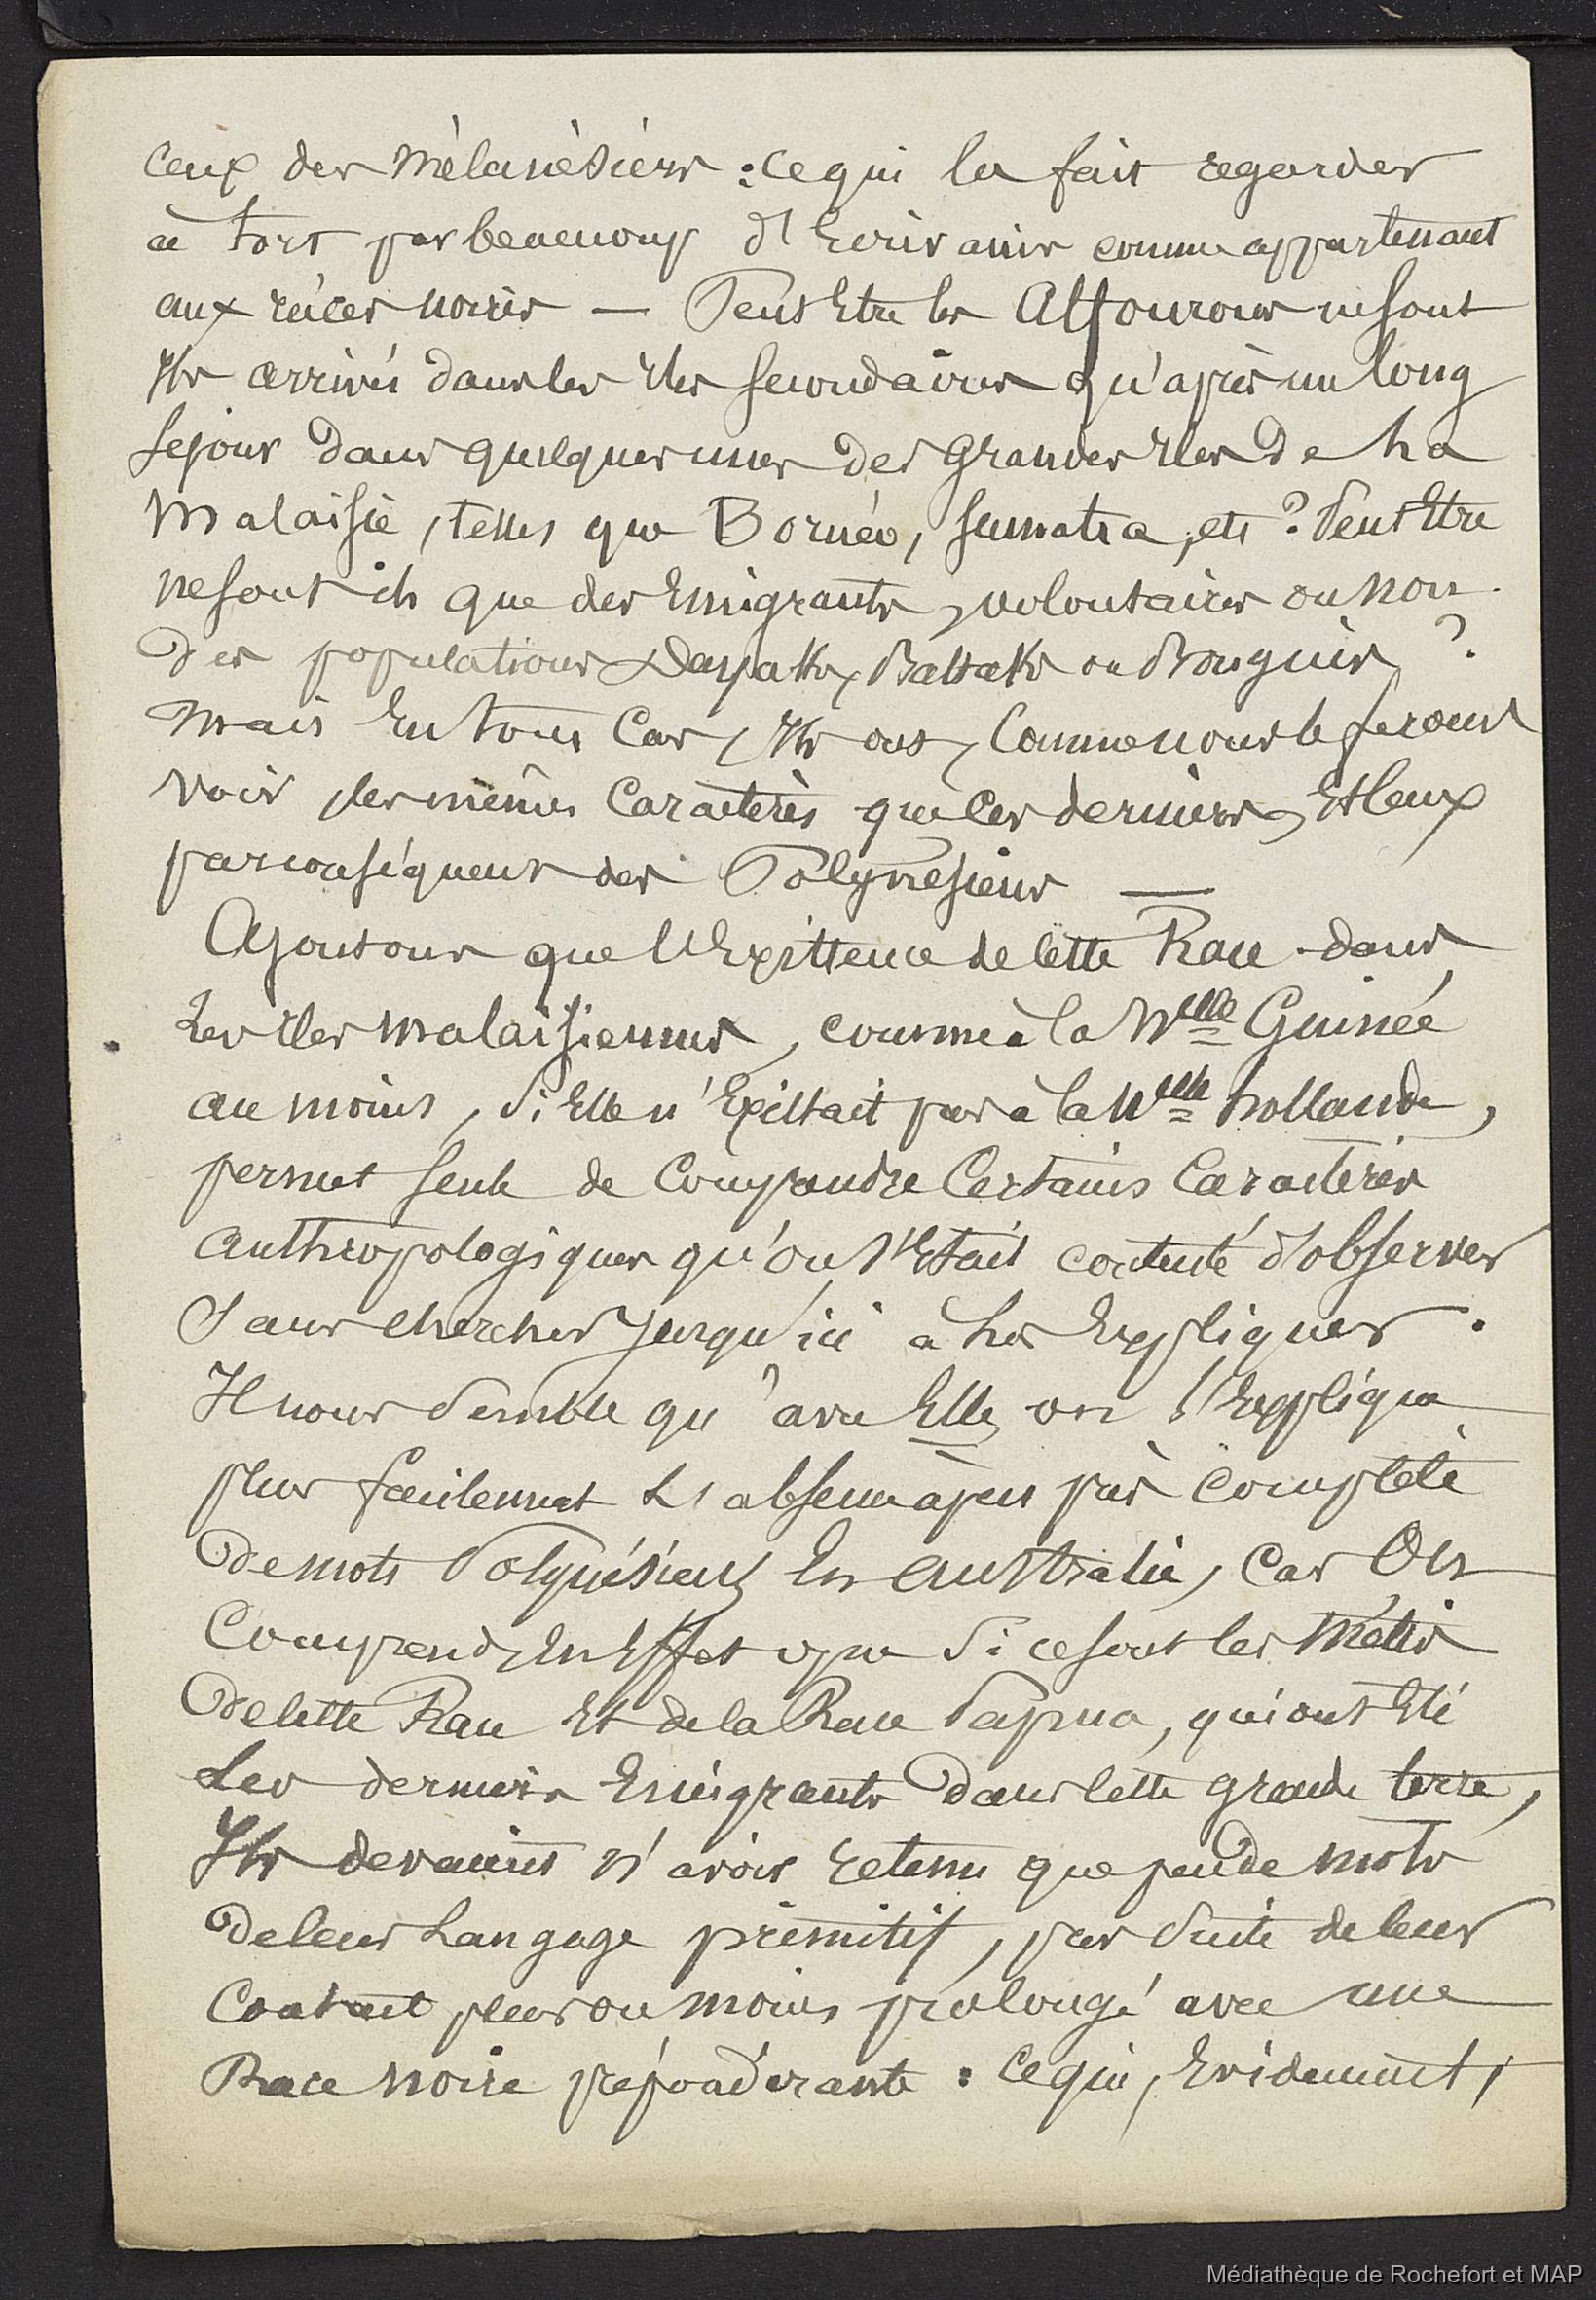 ceux des Mélanésiens : ce qui la fait regarder
à tort par beaucoup d'Ecrivains comme appartenant
aux races noires — Peut Etre les Alfourous ne sont
Ils arrivés dans les Iles secondaires qu'après un long
séjour dans quelques unes des grandes Iles de La
Malaisie, telles que Bornéo, Sumatra, etc ? Peut Etre
ne sont ils que des Emigrants, volontaires ou non
des populations Dayaks, Battaks ou Bouguis ?
Mais En tous Cas, Ils ont, Comme nous le ferons
voir, les mêmes Caractères que ces derniers, Et ceux
par conséquent des Polynésiens —
Ajoutons que l'Existence de cette Race dans
Les Iles malaisiennes, comme à la Nlle Guinée
au moins, si Elle n'Existait pas à la Nlle hollande,
permet seule de Comprendre Certains Caractères
anthropologiques qu'on s'Etait contenté d'observer
Sans chercher jusqu'ici à Les Expliquer.
Il nous semble qu'avec Elle, on s'Explique
plus facilement L'absence à peu près complète
de mots Polynésiens En Australie, Car On
Comprend, En Effet que si ce sont les Métis
de cette Race Et de la Race Papua, qui ont Eté
Les derniers Emigrants Dans cette grande terre,
Ils devaient n'avoir retenu que peu de mots
de leur Langage primitif, par suite de leur
Contact plus ou moins prolongé avec une
Race noire prépondérante : Ce qui, Evidemment,
Médiathèque de Rochefort et MAP